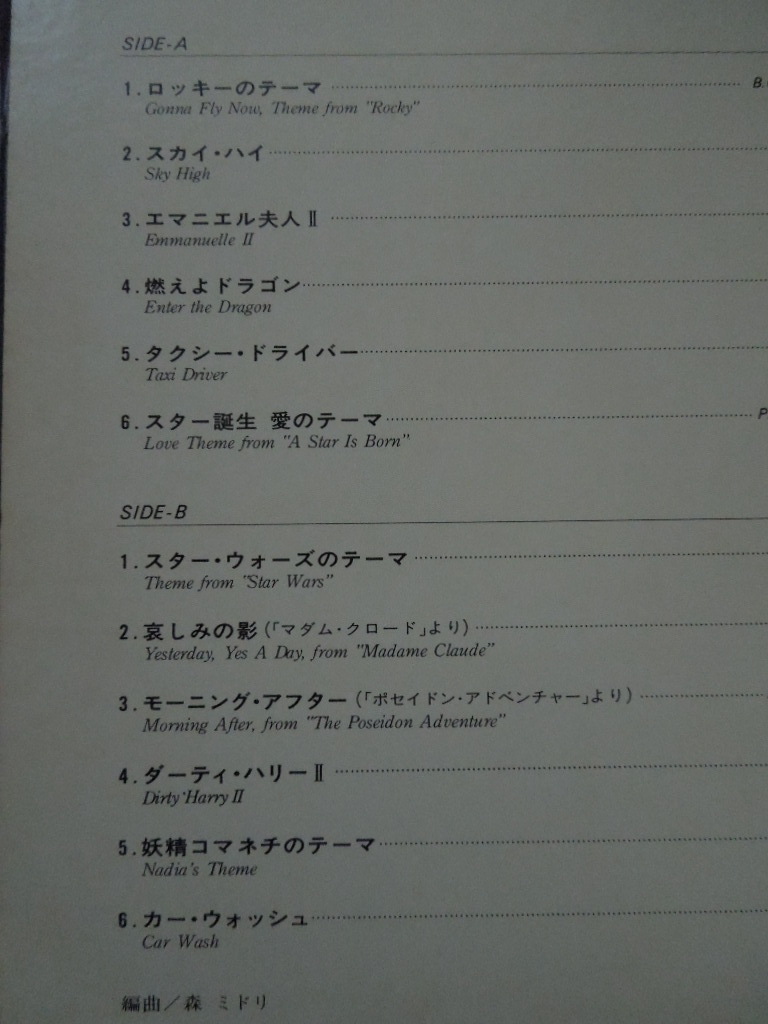 SIDE-A
1.ロッキーのテーマ
Gonna Fly Now, Theme from "Rocky"
2.スカイ・ハイ
Sky High
3.エマニエル夫人Ⅱ
Emmanuelle II
4.燃えよドラゴン
Enter the Dragon
5.タクシー・ドライバー
Taxi Driver
6.スター誕生 愛のテーマ
Love Theme from "A Star Is Born"
SIDE-B
1.スター・ウォーズのテーマ
Theme from "Star Wars"
2.哀しみの影(「マダム・クロード」より)
Yesterday, Yes A Day, from "Madame Claude"
3.モーニング・アフター(「ポセイドン・アドベンチャー」より)
Morning After, from "The Poseidon Adventure"
4.ダーティ・ハリーⅡ
Dirty Harry II
5.妖精コマネチのテーマ
Nadia's Theme
6.カー・ウォッシュ
Car Wash
編曲／森 ミドリ